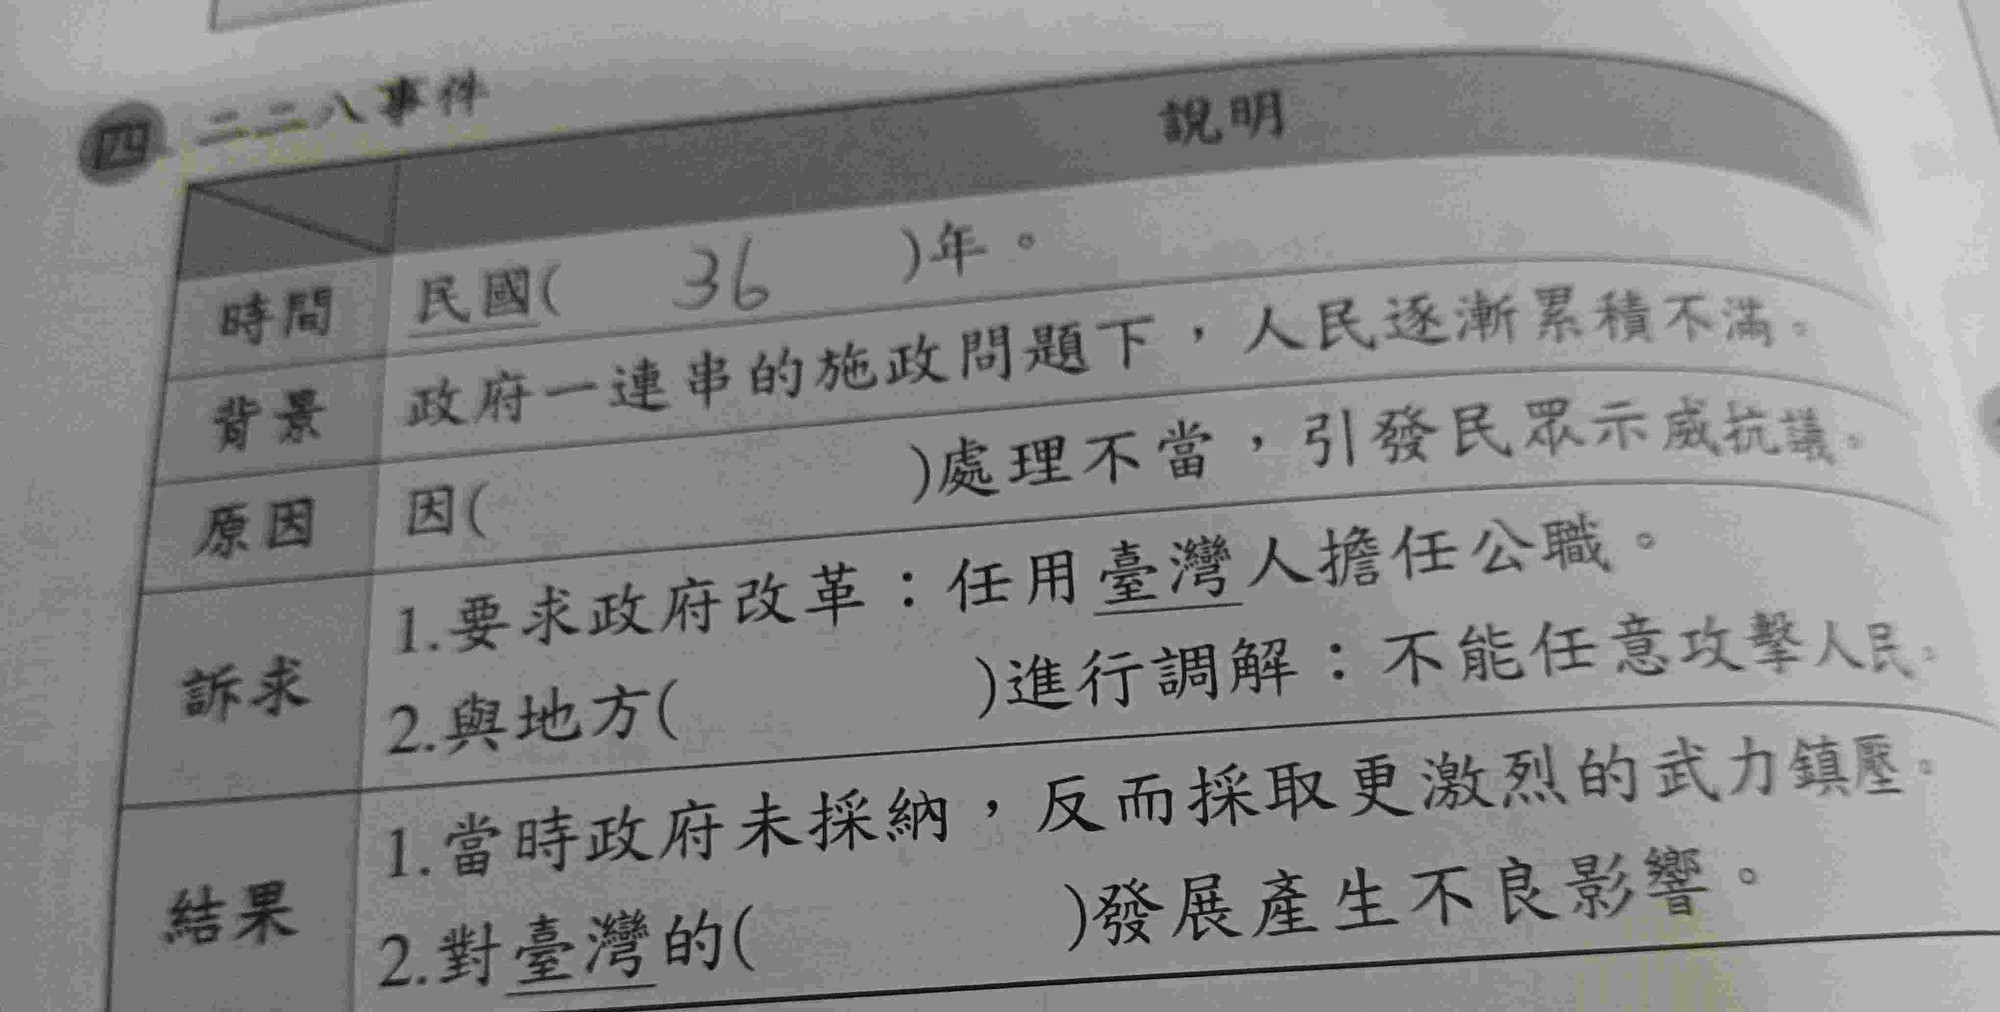 四 二二八事件
說明
時間 民國( 36 )年。
背景 政府一連串的施政問題下，人民逐漸累積不滿。
原因 因( )處理不當，引發民眾示威抗議。
訴求
1.要求政府改革：任用臺灣人擔任公職。
2.與地方( )進行調解：不能任意攻擊人民。
結果
1.當時政府未採納，反而採取更激烈的武力鎮壓。
2.對臺灣的( )發展產生不良影響。